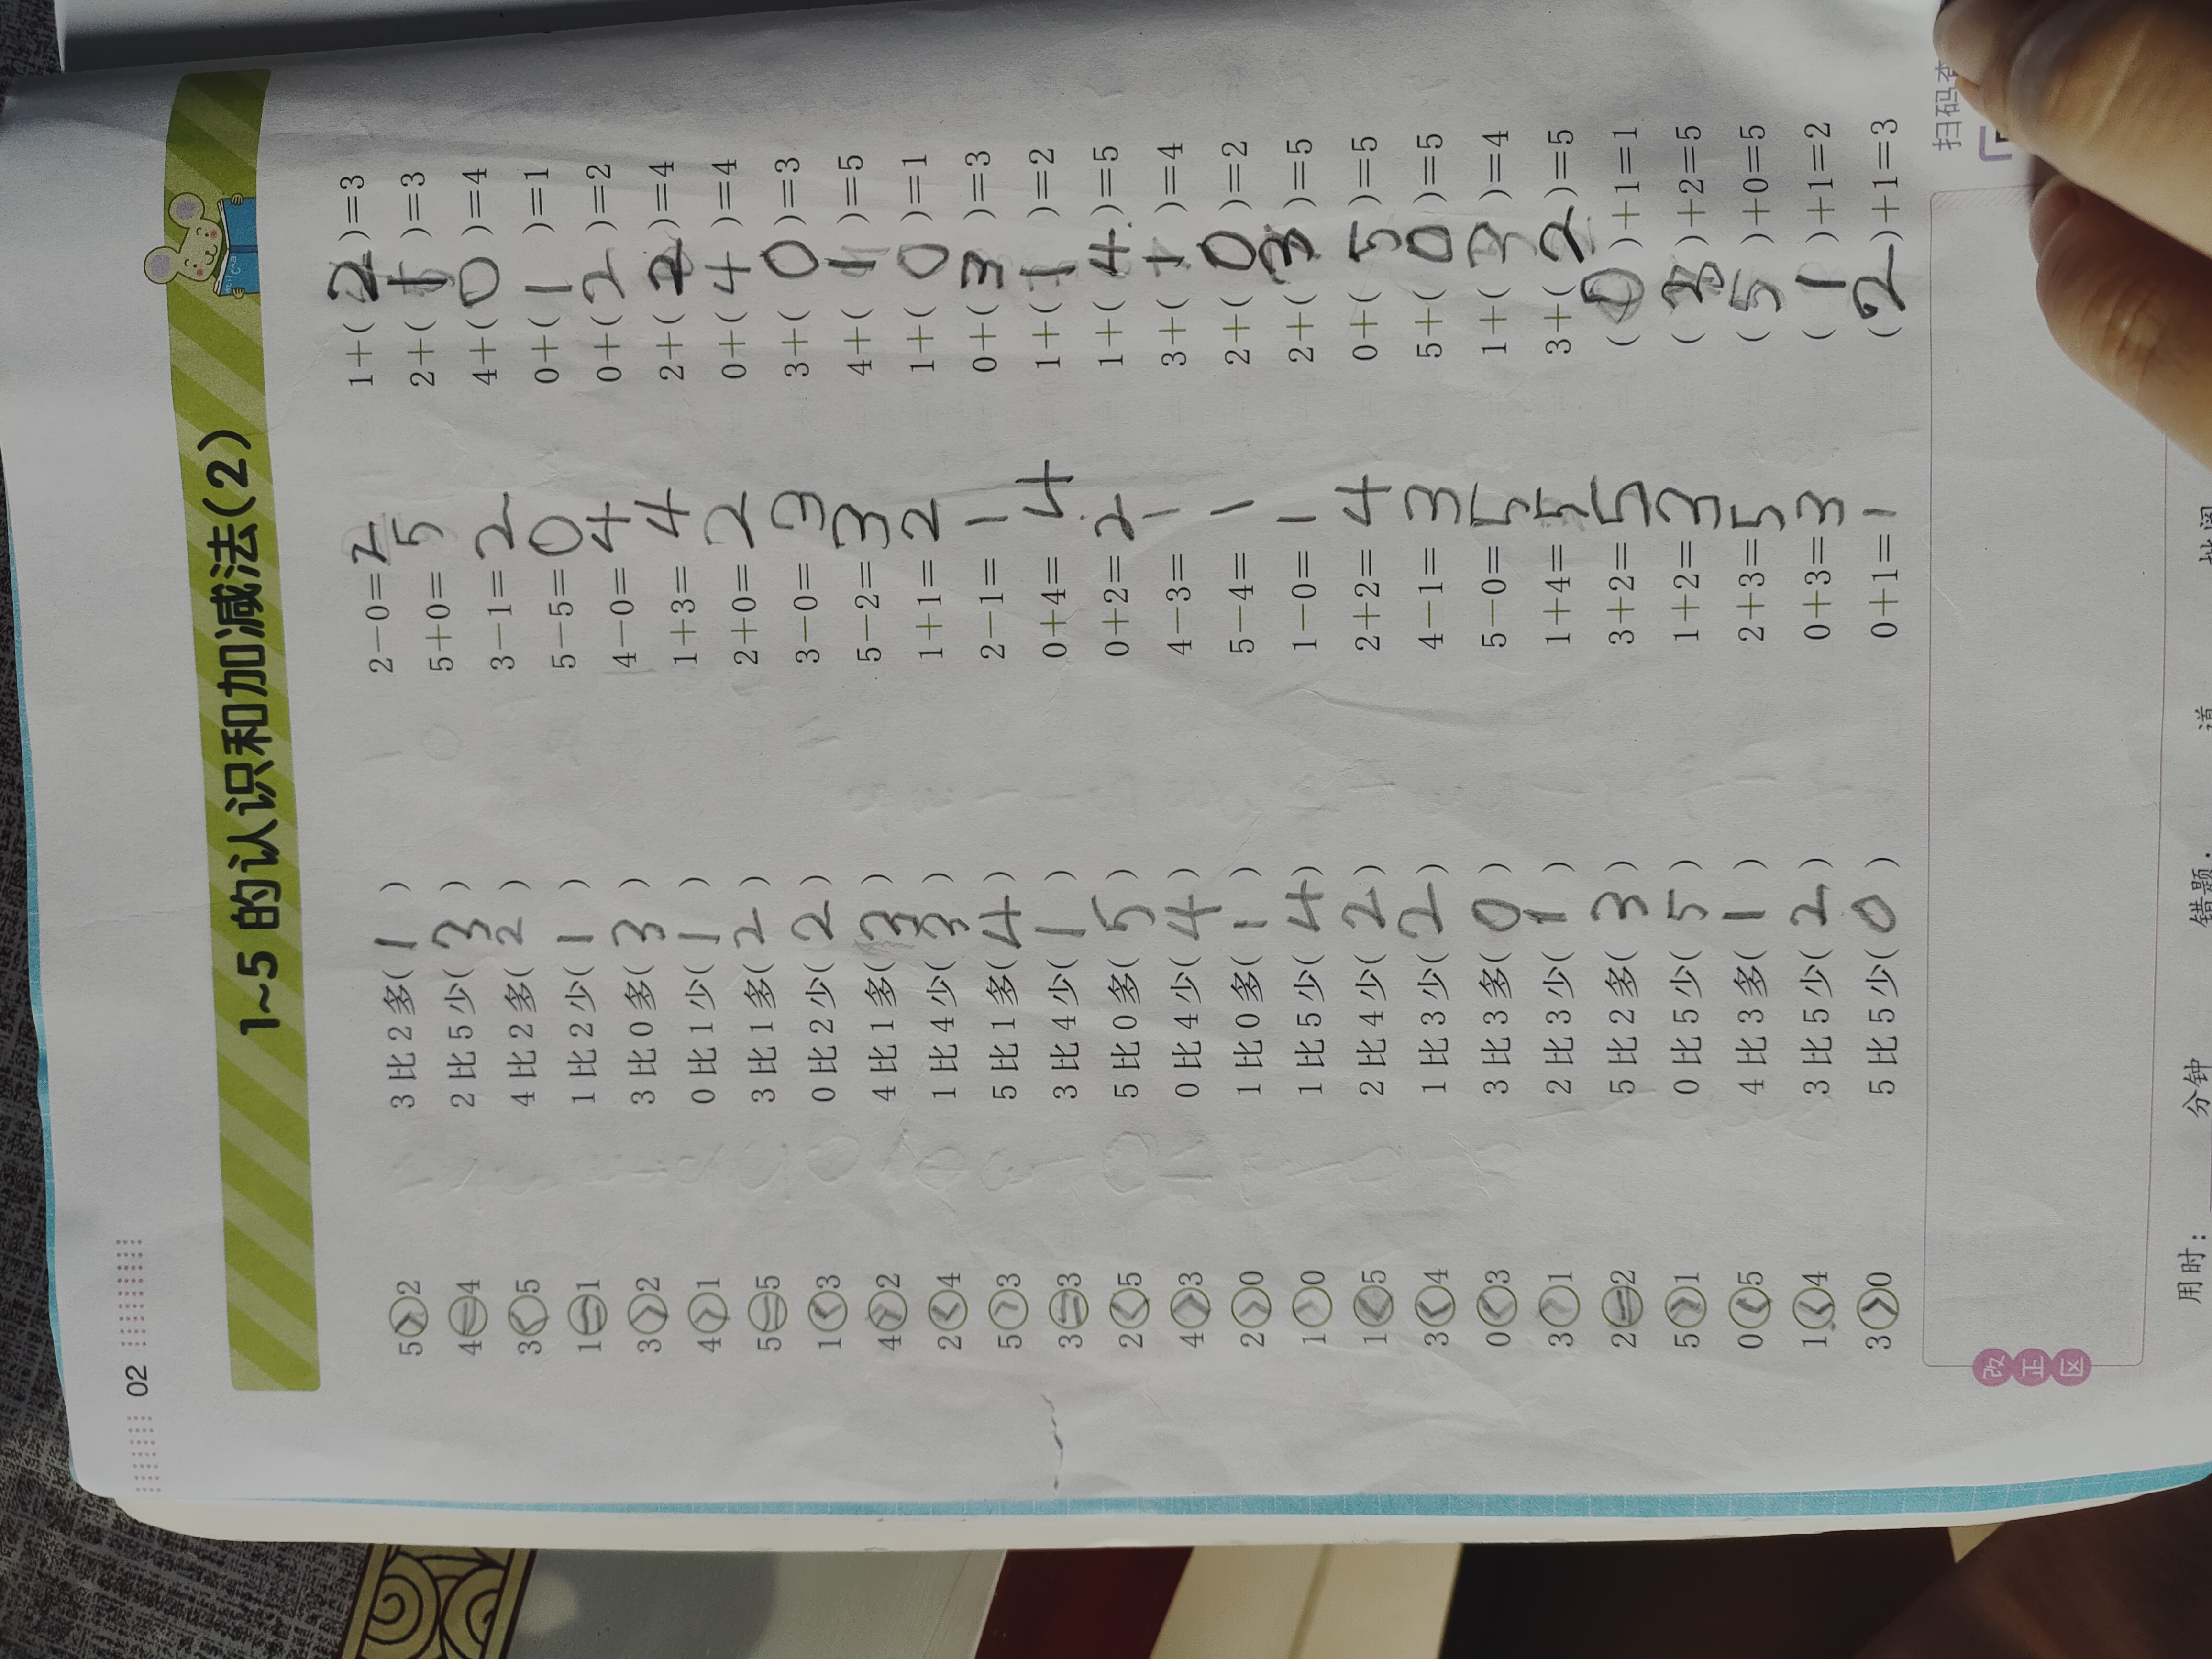 02
1~5的认识和加减法(2)
5>2 3比2多(1) 2-0=2 1+(2)=3
4=4 2比5少(3) 5+0=5 2+(1)=3
3<5 4比2多(2) 3-1=2 4+(0)=4
1=1 1比2少(1) 5-5=0 0+(1)=1
3>2 3比0多(3) 4-0=4 0+(2)=2
4>1 0比1少(1) 1+3=4 2+(2)=4
5=5 3比1多(2) 2+0=2 0+(4)=4
1<3 0比2少(2) 3-0=3 3+(0)=3
4>2 4比1多(3) 5-2=3 4+(1)=5
2<4 1比4少(3) 1+1=2 1+(0)=1
5>3 5比1多(4) 2-1=1 0+(3)=3
3=3 3比4少(1) 0+4=4 1+(1)=2
2<5 5比0多(5) 0+2=2 1+(4)=5
4>3 0比4少(4) 4-3=1 3+(1)=4
2>0 1比0多(1) 5-4=1 2+(0)=2
1>0 1比5少(4) 1-0=1 2+(3)=5
1<5 2比4少(2) 2+2=4 0+(5)=5
3<4 1比3少(2) 4-1=3 5+(0)=5
0<3 3比3多(0) 5-0=5 1+(3)=4
3>1 2比3少(1) 1+4=5 3+(2)=5
2=2 5比2多(3) 3+2=5 (0)+1=1
5>1 0比5少(5) 1+2=3 (3)+2=5
0<5 4比3多(1) 2+3=5 (5)+0=5
1<4 3比5少(2) 0+3=3 (1)+1=2
3>0 5比5少(0) 0+1=1 (2)+1=3
改正区
扫码
用时: 分钟 错题: 道